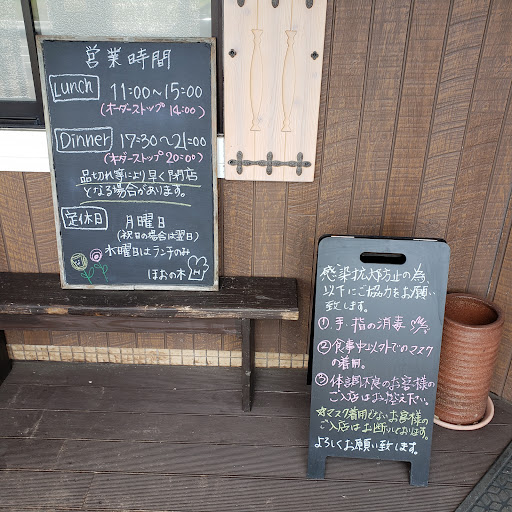 営業時間
Lunch 11:00~15:00
(オーダーストップ 14:00)
Dinner 17:30~21:00
(オーダーストップ 20:00)
品切れ等により早く閉店
となる場合があります。
定休日 月曜日
(祝日の場合は翌日)
水曜日はランチのみ
ほおの木
感染拡大防止の為、
以下にご協力をお願い
致します。
①手、指の消毒
②食事中以外でのマスク
の着用。
③体調不良のお客様の
ご入店はお控え下さい。
☆マスク着用しないお客様の
ご入店はお断りしております。
よろしくお願い致します。